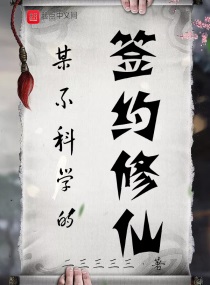 起点中文网
某不科学的
签约修仙
二三三三三·著